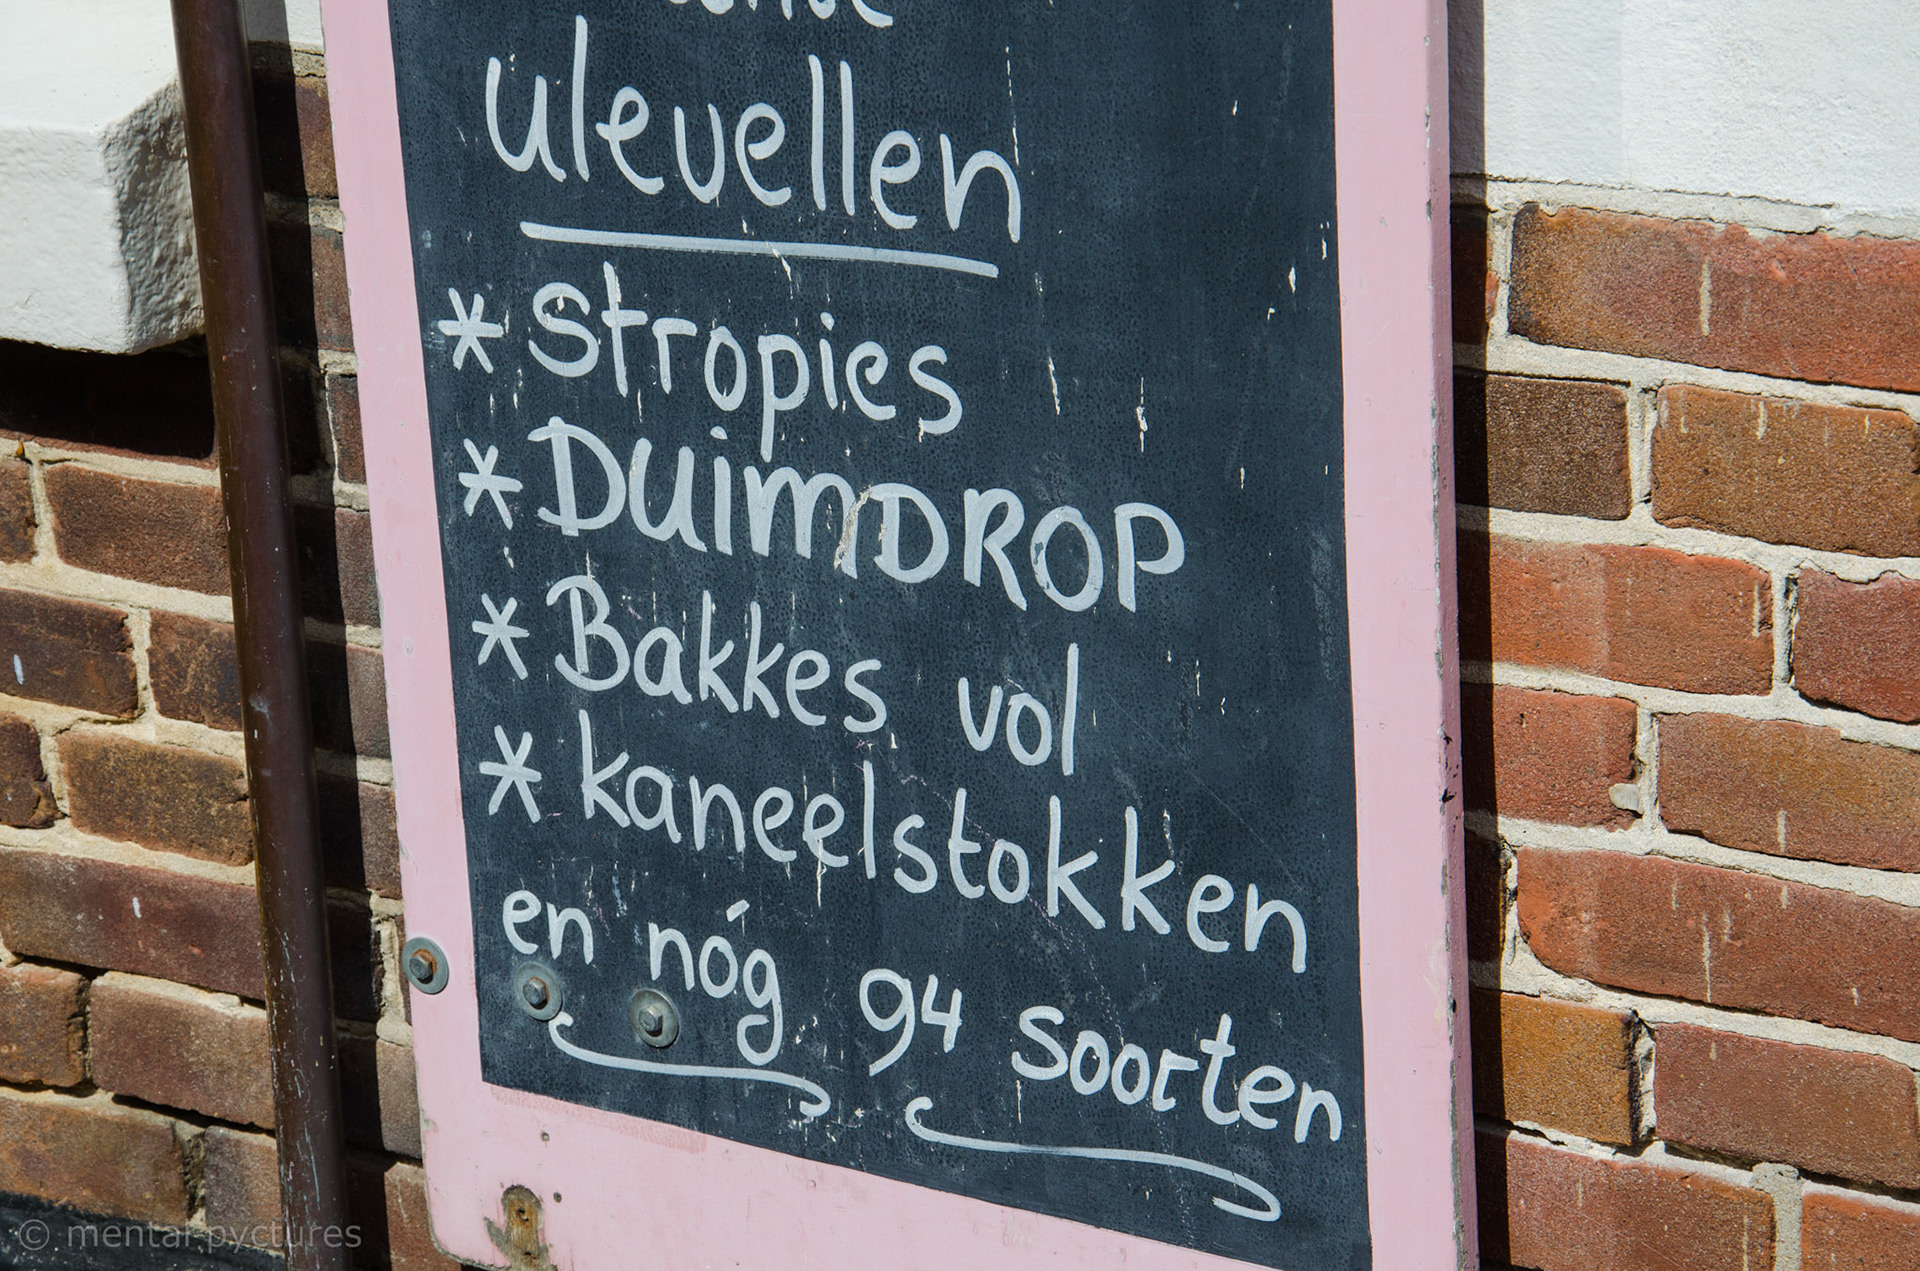 ulevellen
* Stropies
* DuimDROP
* Bakkes vol
* kaneelstokken
en nóg 94 soorten
© mental-pyctures